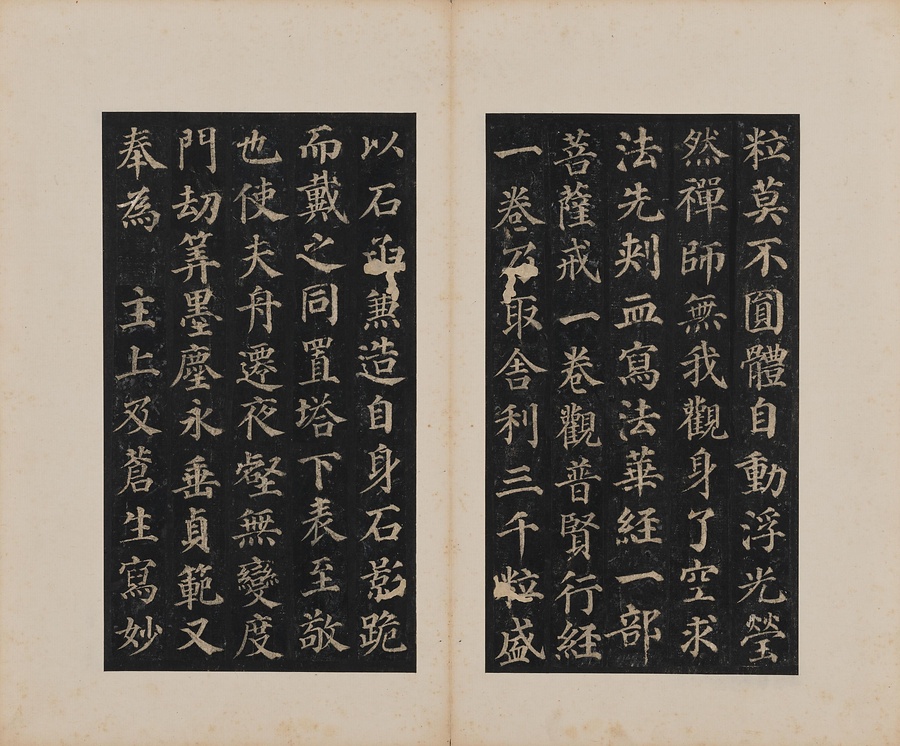 粒莫不圓體自動浮光瑩
然禪師無我觀身了空求
法先刾血寫法華経一部
菩薩戒一卷觀普賢行経
一卷乃取舍利三千粒盛
以石函兼造自身石影跪
而戴之同置塔下表至敬
也使夫舟遷夜壑無變度
門劫筭墨塵永垂貞範又
奉為 主上及蒼生寫妙